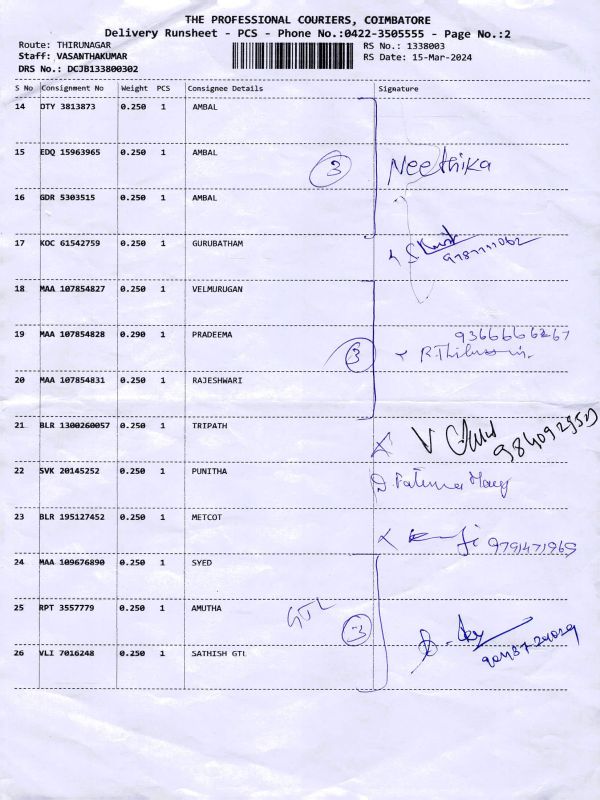 THE PROFESSIONAL COURIERS, COIMBATORE
Delivery Runsheet - PCS - Phone No.:0422-3505555 - Page No.:2
Route: THIRUNAGAR RS No.: 1338003
Staff: VASANTHAKUMAR RS Date: 15-Mar-2024
DRS No.: DCJB133800302
S No Consignment No Weight PCS Consignee Details Signature
14 DTY 3813873 0.250 1 AMBAL
15 EDQ 15963965 0.250 1 AMBAL 3 Neethika
16 GDR 5303515 0.250 1 AMBAL
17 KOC 61542759 0.250 1 GURUBATHAM
18 MAA 107854827 0.250 1 VELMURUGAN
19 MAA 107854828 0.290 1 PRADEEMA 3 9366666267
20 MAA 107854831 0.250 1 RAJESHWARI
21 BLR 1300260057 0.250 1 TRIPATH
22 SVK 20145252 0.250 1 PUNITHA
23 BLR 195127452 0.250 1 METCOT 9791471965
24 MAA 109676890 0.250 1 SYED
25 RPT 3557779 0.250 1 AMUTHA GTL 3
26 VLI 7016248 0.250 1 SATHISH GTL